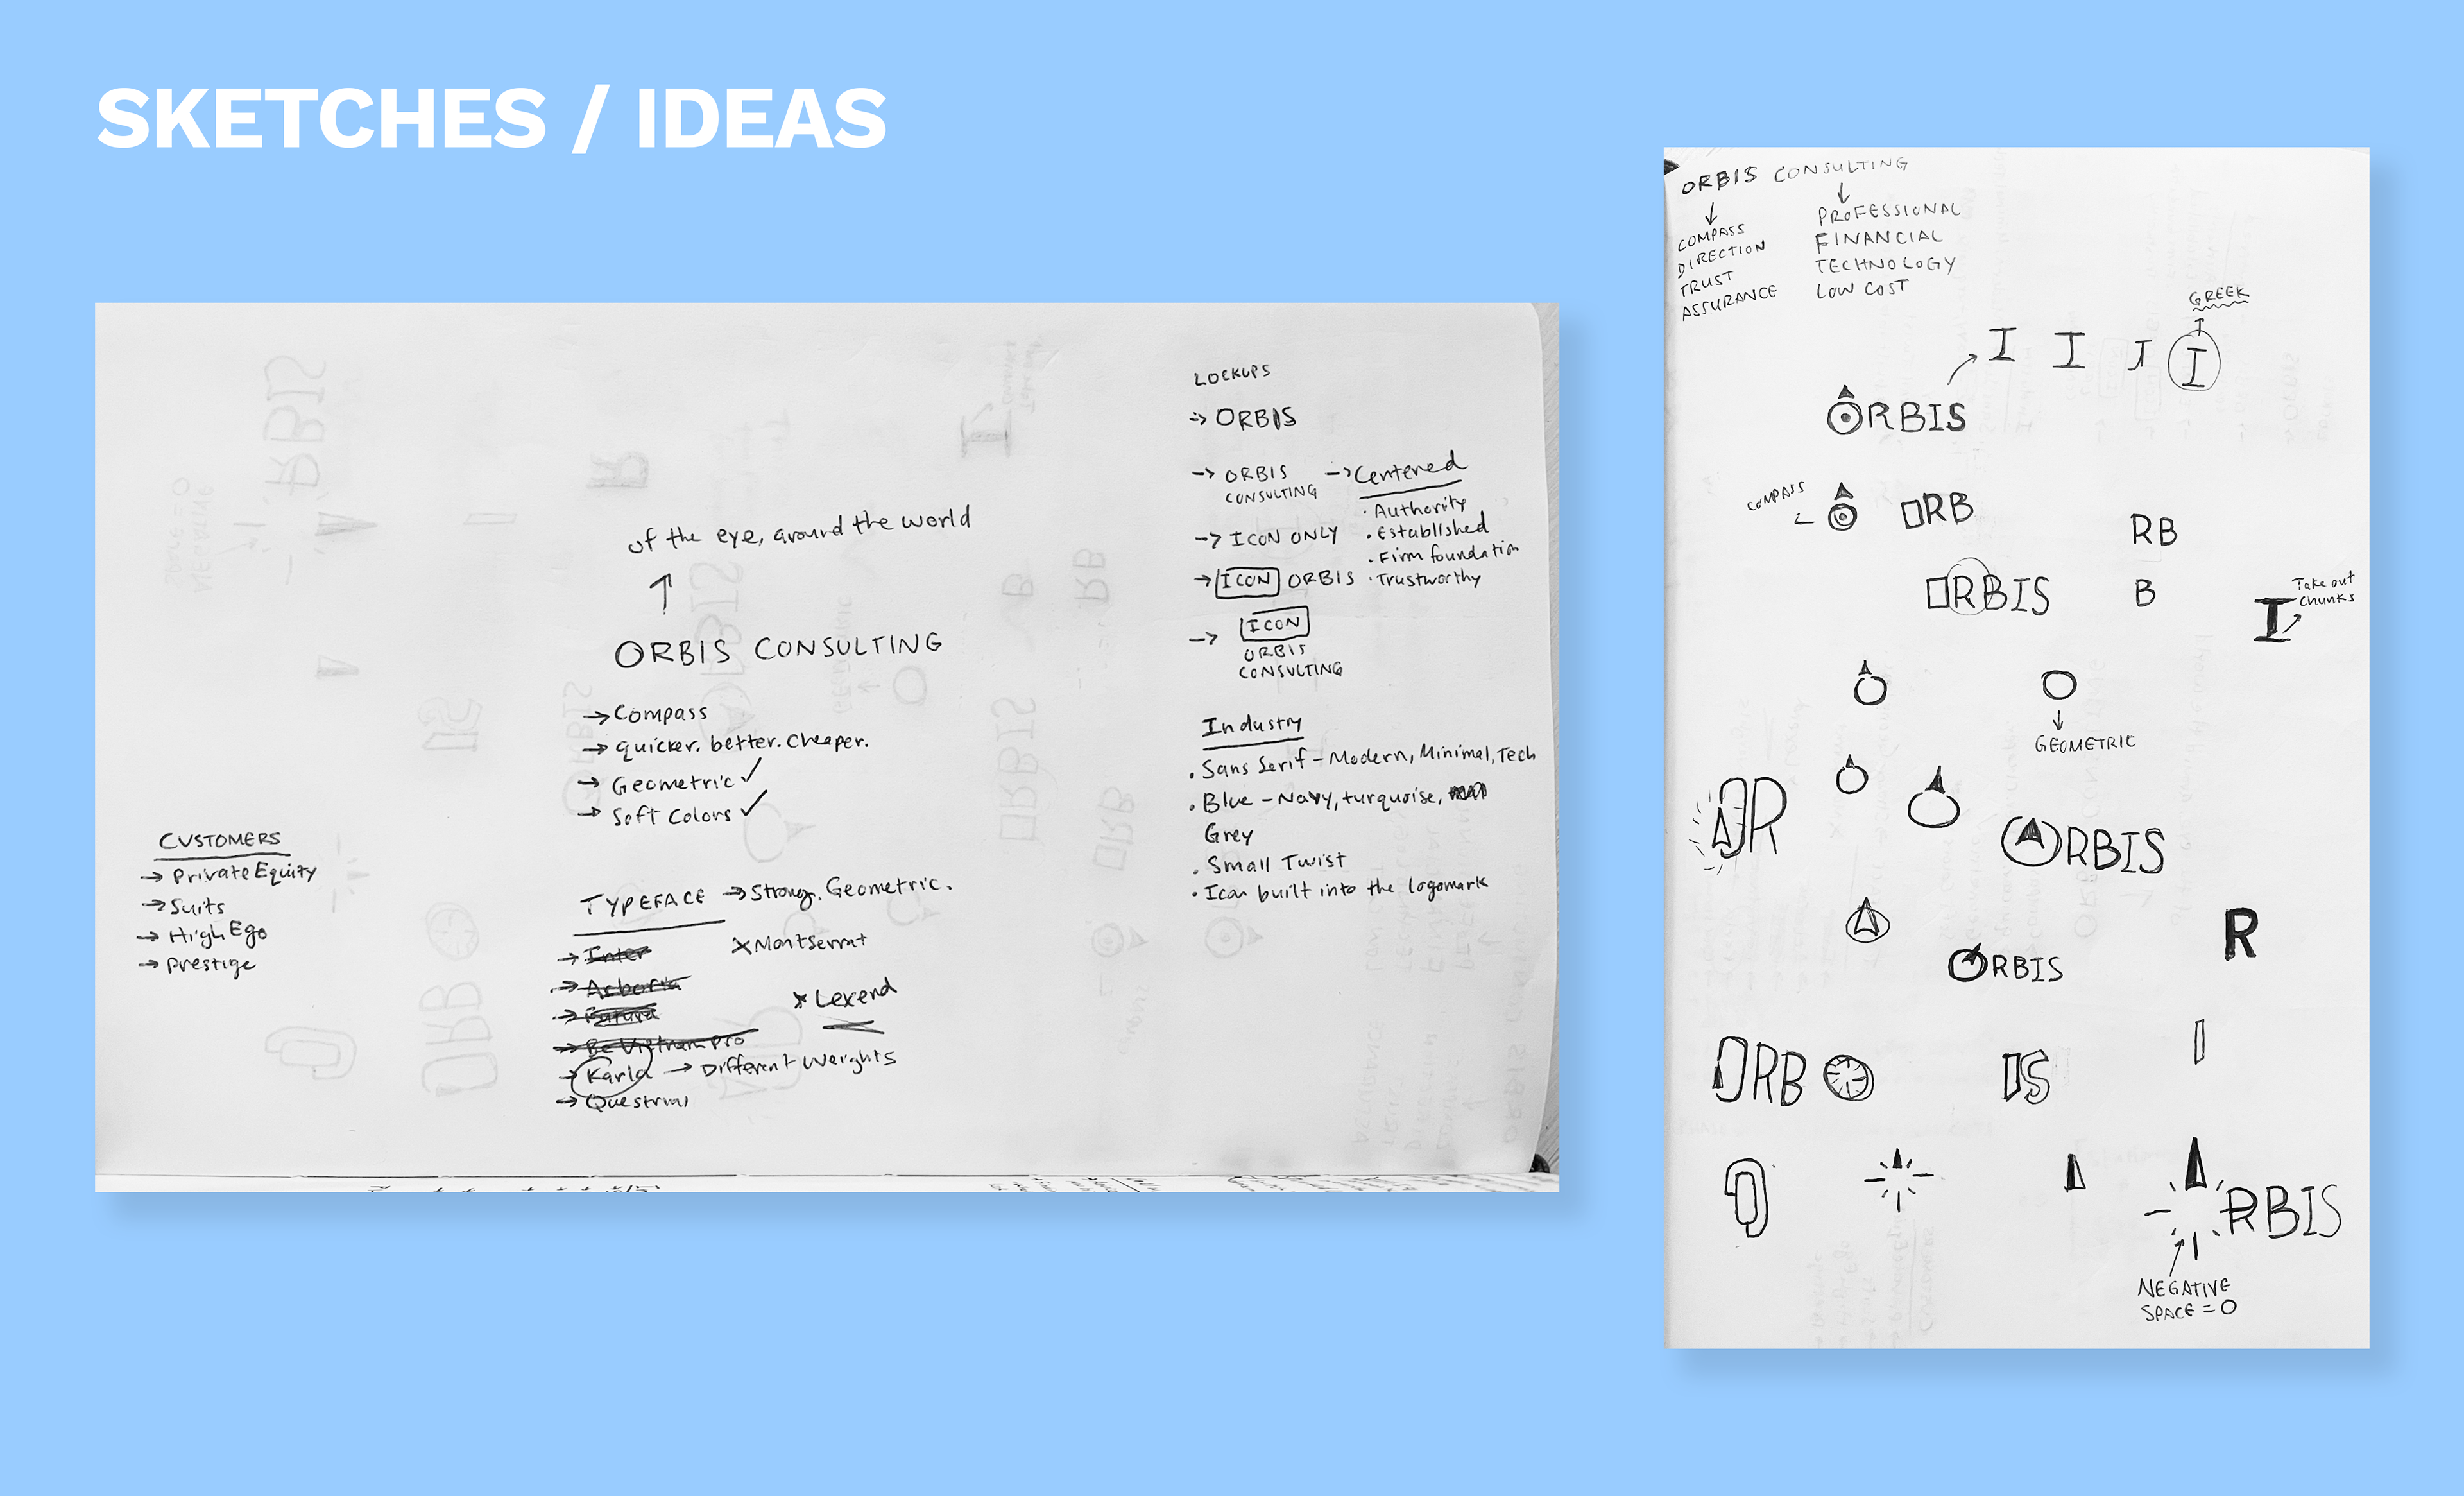 SKETCHES / IDEAS
of the eye, around the world
↑
ORBIS CONSULTING
→ Compass
→ quicker. better. Cheaper.
→ Geometric ✓
→ Soft Colors ✓
CUSTOMERS
→ Private Equity
→ Suits
→ High Ego
→ Prestige
TYPEFACE → Strong. Geometric.
→ Inter
→ Arboria
→ Futura
→ Be Vietnam Pro
→ Karla → Different Weights
→ Questrial
× Montserrat
× Lexend
LOCKUPS
→ ORBIS
→ ORBIS
CONSULTING
→ Centered
· Authority
· Established
· Firm foundation
· Trustworthy
→ ICON ONLY
→ ICON ORBIS
→ ICON
ORBIS
CONSULTING
Industry
· Sans Serif - Modern, Minimal, Tech
· Blue - Navy, turquoise,
Grey
· Small Twist
· Icon built into the logomark
ORBIS CONSULTING
COMPASS
DIRECTION
TRUST
ASSURANCE
PROFESSIONAL
FINANCIAL
TECHNOLOGY
LOW COST
GREEK
I I I I
ORBIS
COMPASS
ORB
RB
ORBIS
B
Take out
chunks
I
GEOMETRIC
OR
ORBIS
R
ORBIS
ORB
IS
RBIS
NEGATIVE
SPACE = O